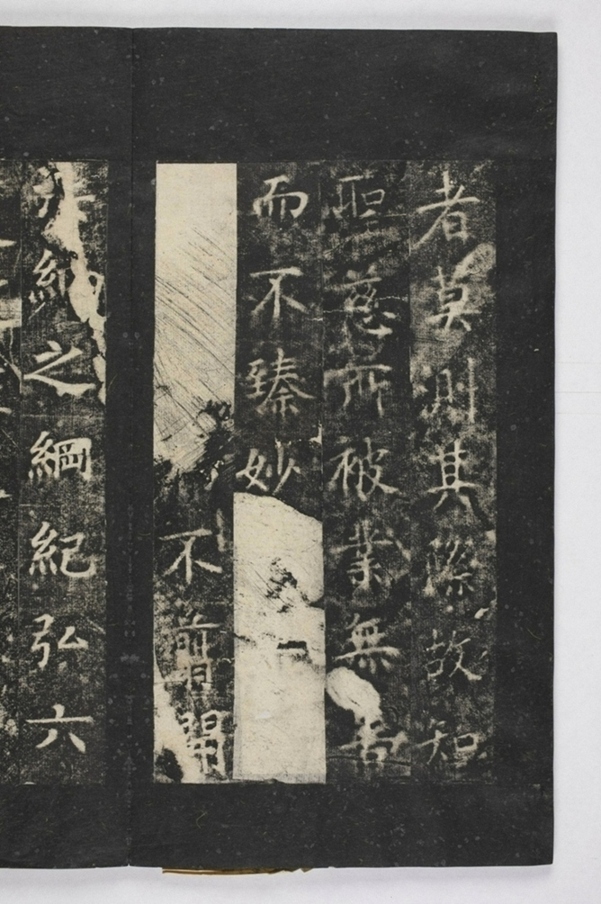 者莫測其際故知
聖慈所被業無善
而不臻妙
不翦開
法網之綱紀弘六